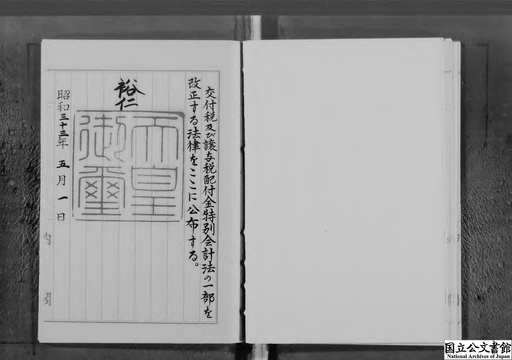 交付税及び譲与税配付金特別会計法の一部を
改正する法律をここに公布する。
裕仁
天皇
御璽
昭和三十三年五月一日
内閣
国立公文書館
National Archives of Japan